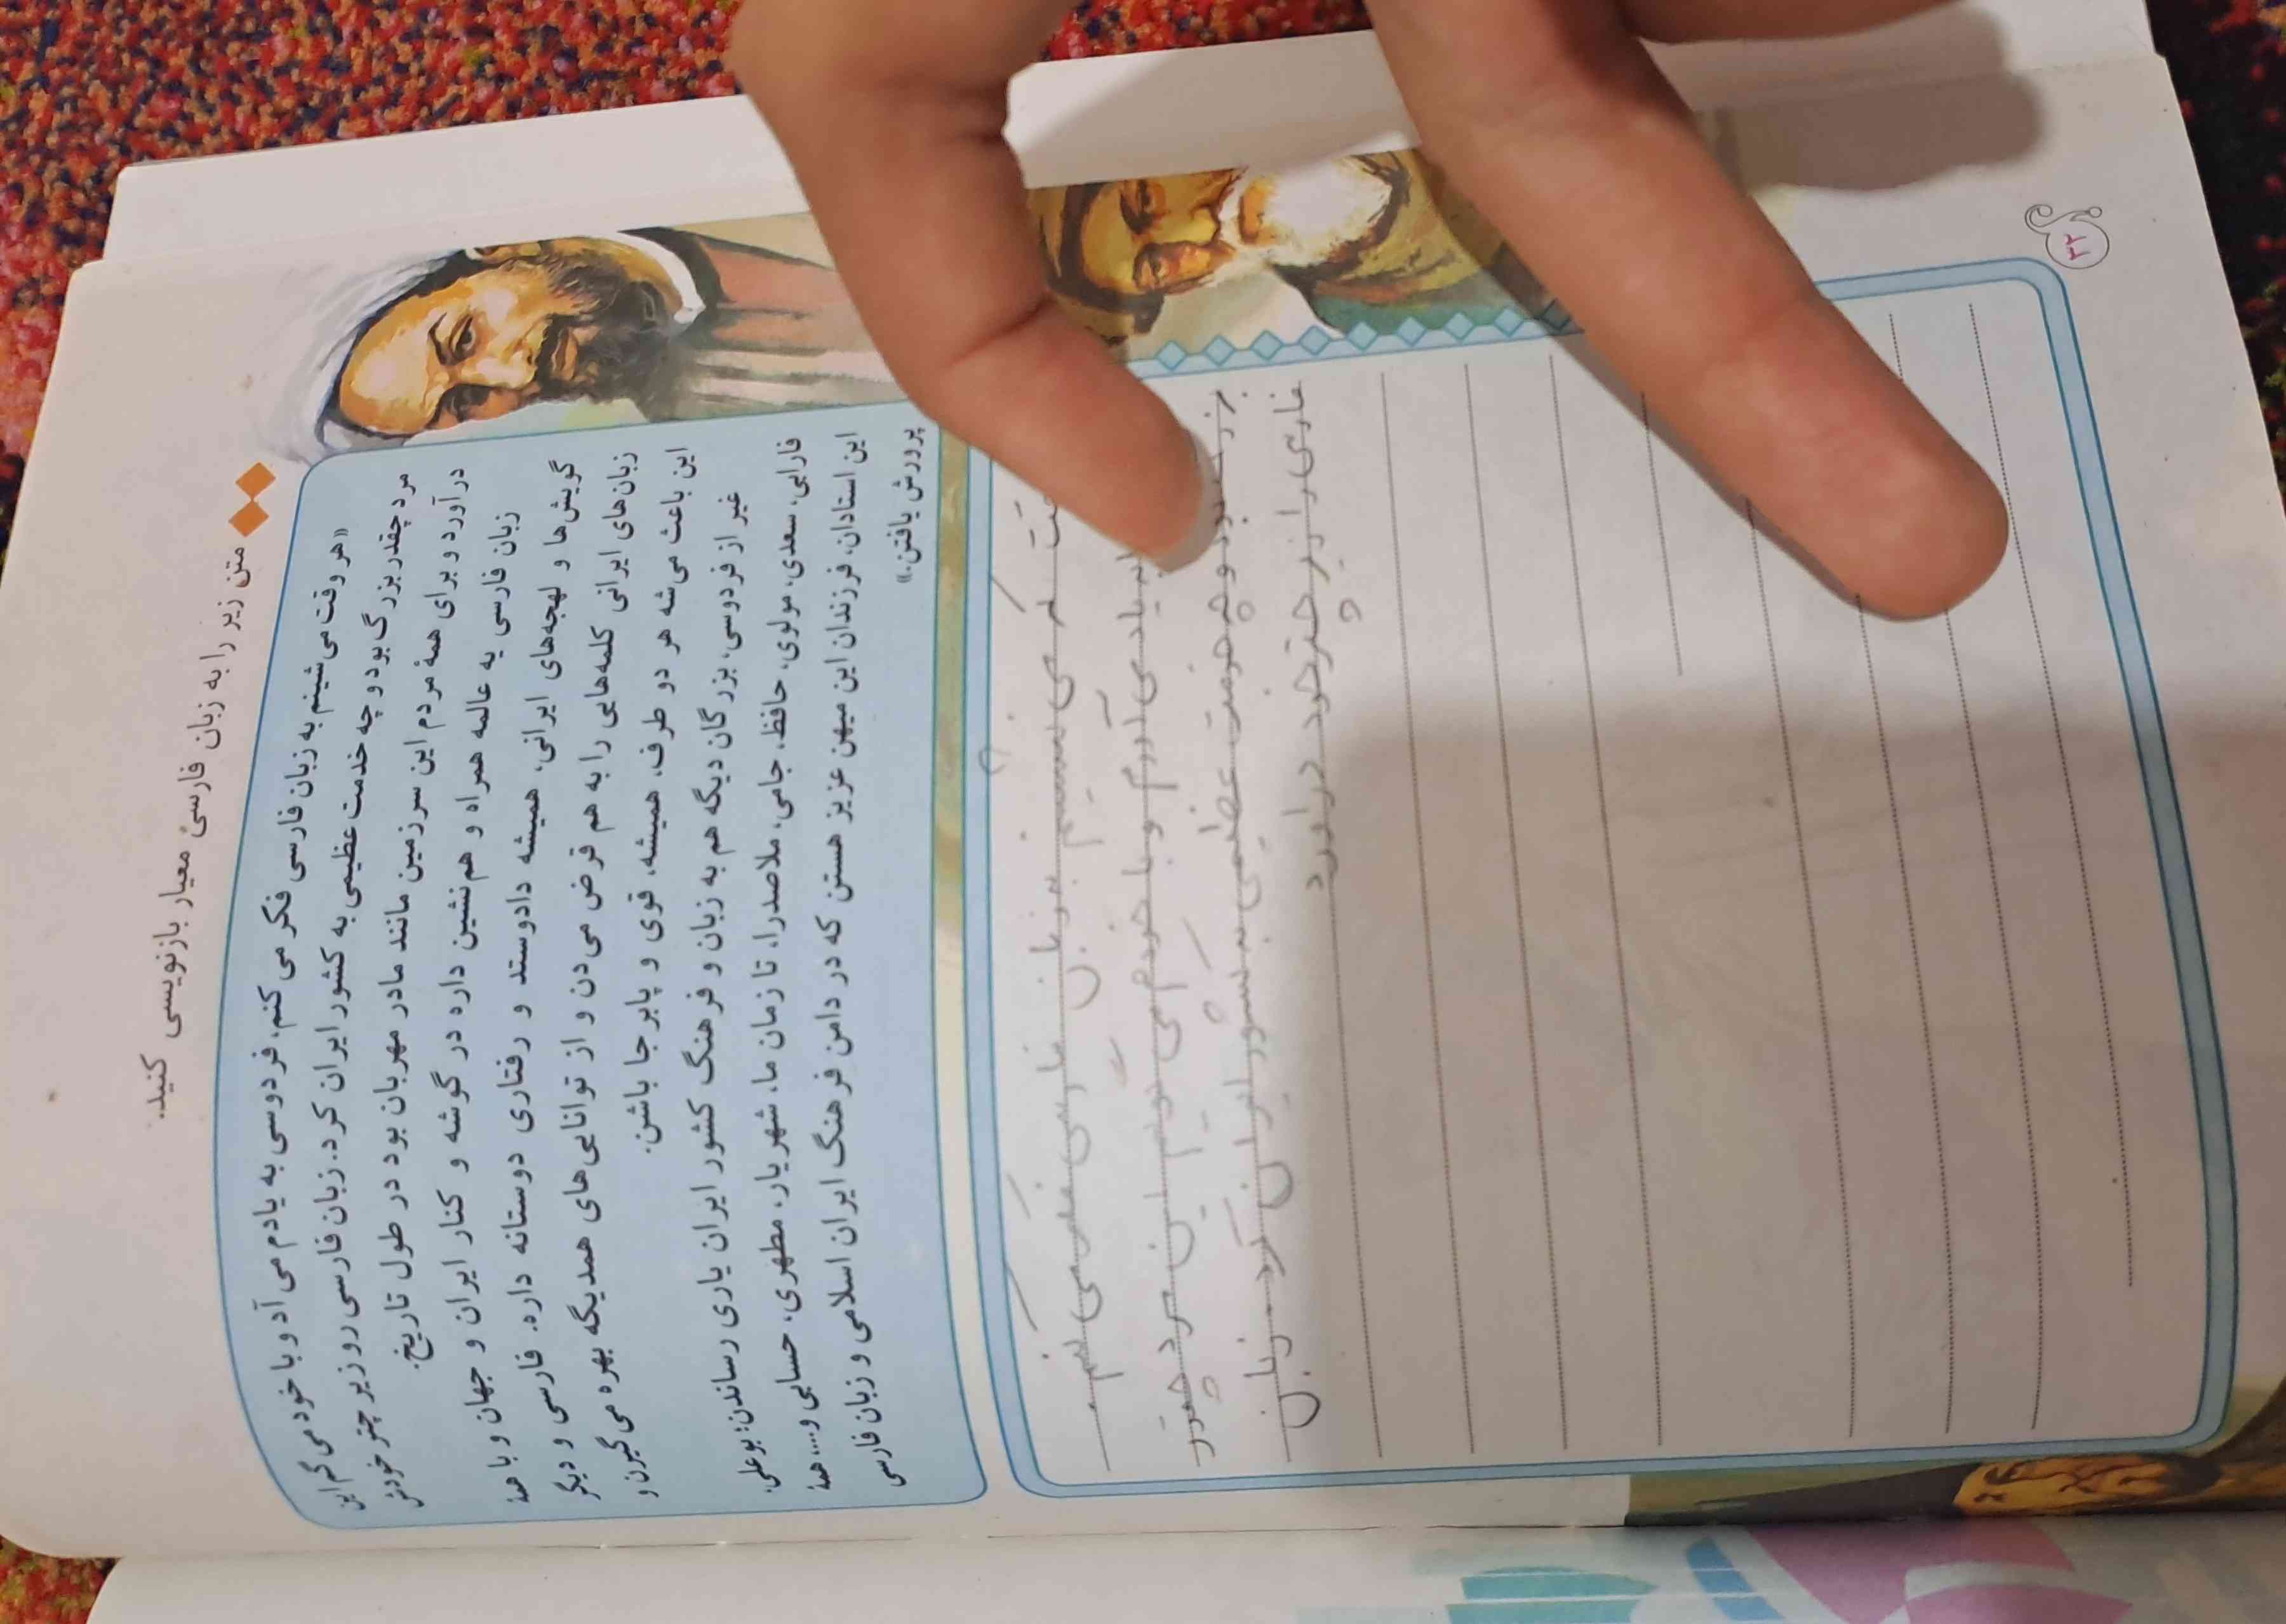 متن زیر را به زبان فارسیِ معیار بازنویسی کنید.
«هر وقت می‌شینم به زبان فارسی فکر می‌کنم، فردوسی به یادم می‌آد و با خودم می‌گم این
مرد چقدر بزرگ بود و چه خدمت عظیمی به کشور ایران کرد. زبان فارسی رو زیر چتر خودش
در آورد و برای همهٔ مردم این سرزمین مانند مادر مهربان بود در طول تاریخ.
زبان فارسی یه عالمه همراه و هم‌نشین داره در گوشه و کنار ایران و جهان و با همهٔ
گویش‌ها و لهجه‌های ایرانی، همیشه دادوستد و رفتاری دوستانه داره. فارسی و دیگر
زبان‌های ایرانی کلمه‌هایی را به هم قرض می‌دن و از توانایی‌های همدیگه بهره می‌گیرن و
این باعث می‌شه هر دو طرف، همیشه، قوی و پابرجا باشن.
غیر از فردوسی، بزرگان دیگه هم به زبان و فرهنگ کشور ایران یاری رساندن؛ بوعلی،
فارابی، سعدی، مولوی، حافظ، جامی، ملاصدرا، تا زمان ما، شهریار، مطهری، حسابی و.... همهٔ
این استادان، فرزندان این میهن عزیز هستن که در دامن فرهنگ ایران اسلامی و زبان فارسی
پرورش یافتن.»
که می نشینم به زبان فارسی فکر می کنم
به یاد می آورم و با خودم می گویم این مرد چقدر
بزرگ بود و چه خدمت عظیمی به کشور ایران کرد. زبان
فارسی را زیر چتر خود درآورد
۳۲